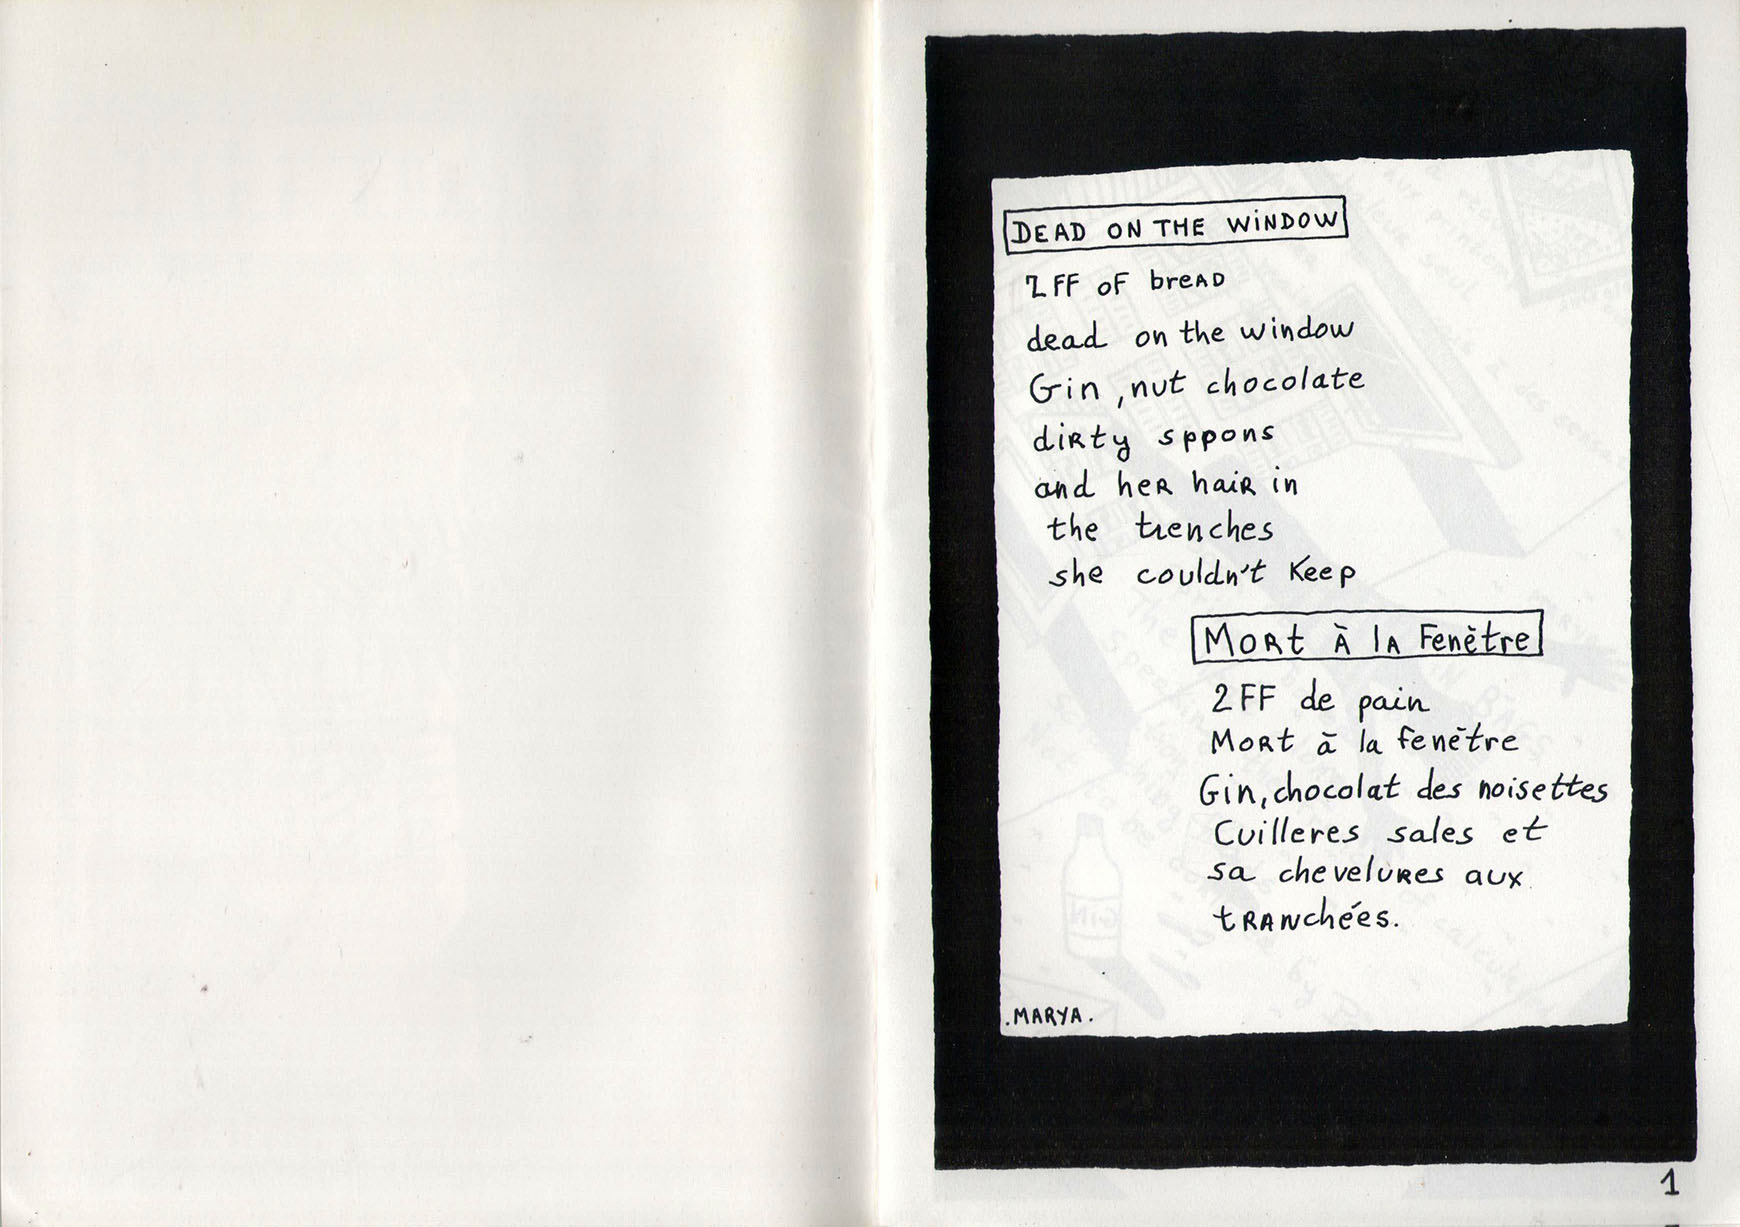 DEAD ON THE WiNDOW
2FF OF breAD
dead on the window
Gin , nut chocolate
diRty sppons
and heR haiR in
the trenches
she couldn't Keep
MORt À lA Fenètre
2FF de pain
MORt à la fenètre
Gin, chocolat des noisettes
Cuilleres sales et
sa chevelures aux
tRANchées.
.MARYA.
1